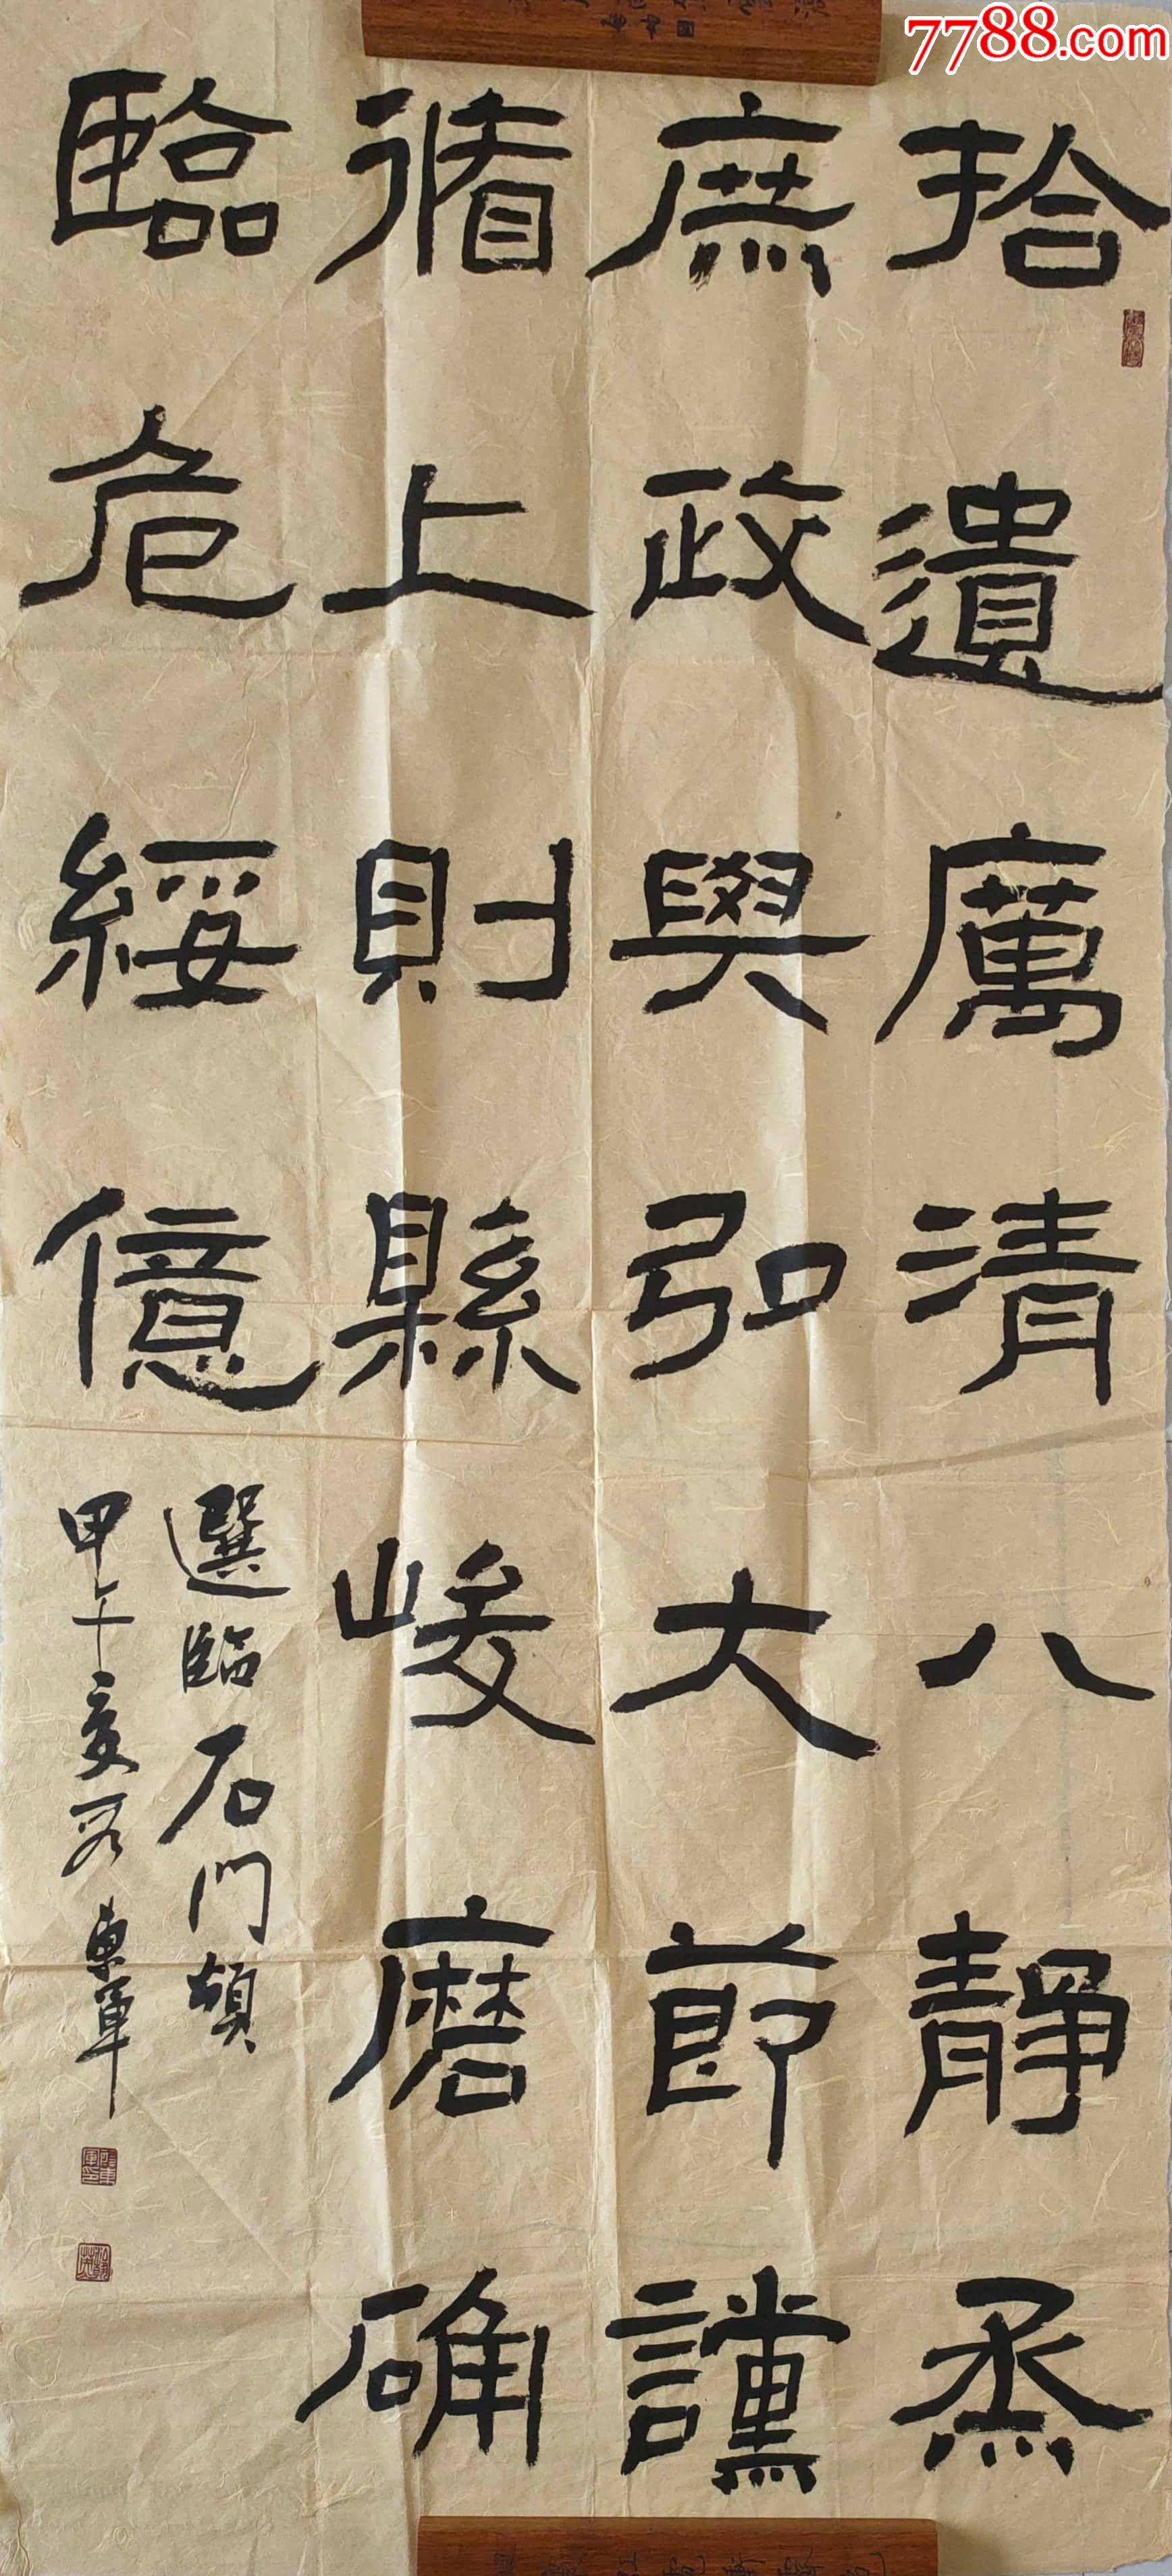 7788.com
拾遺厲清八静烝
庶政與弘大節讜
循上則縣峻磨确
臨危綏億
選臨石門頌
甲午夏 東軍